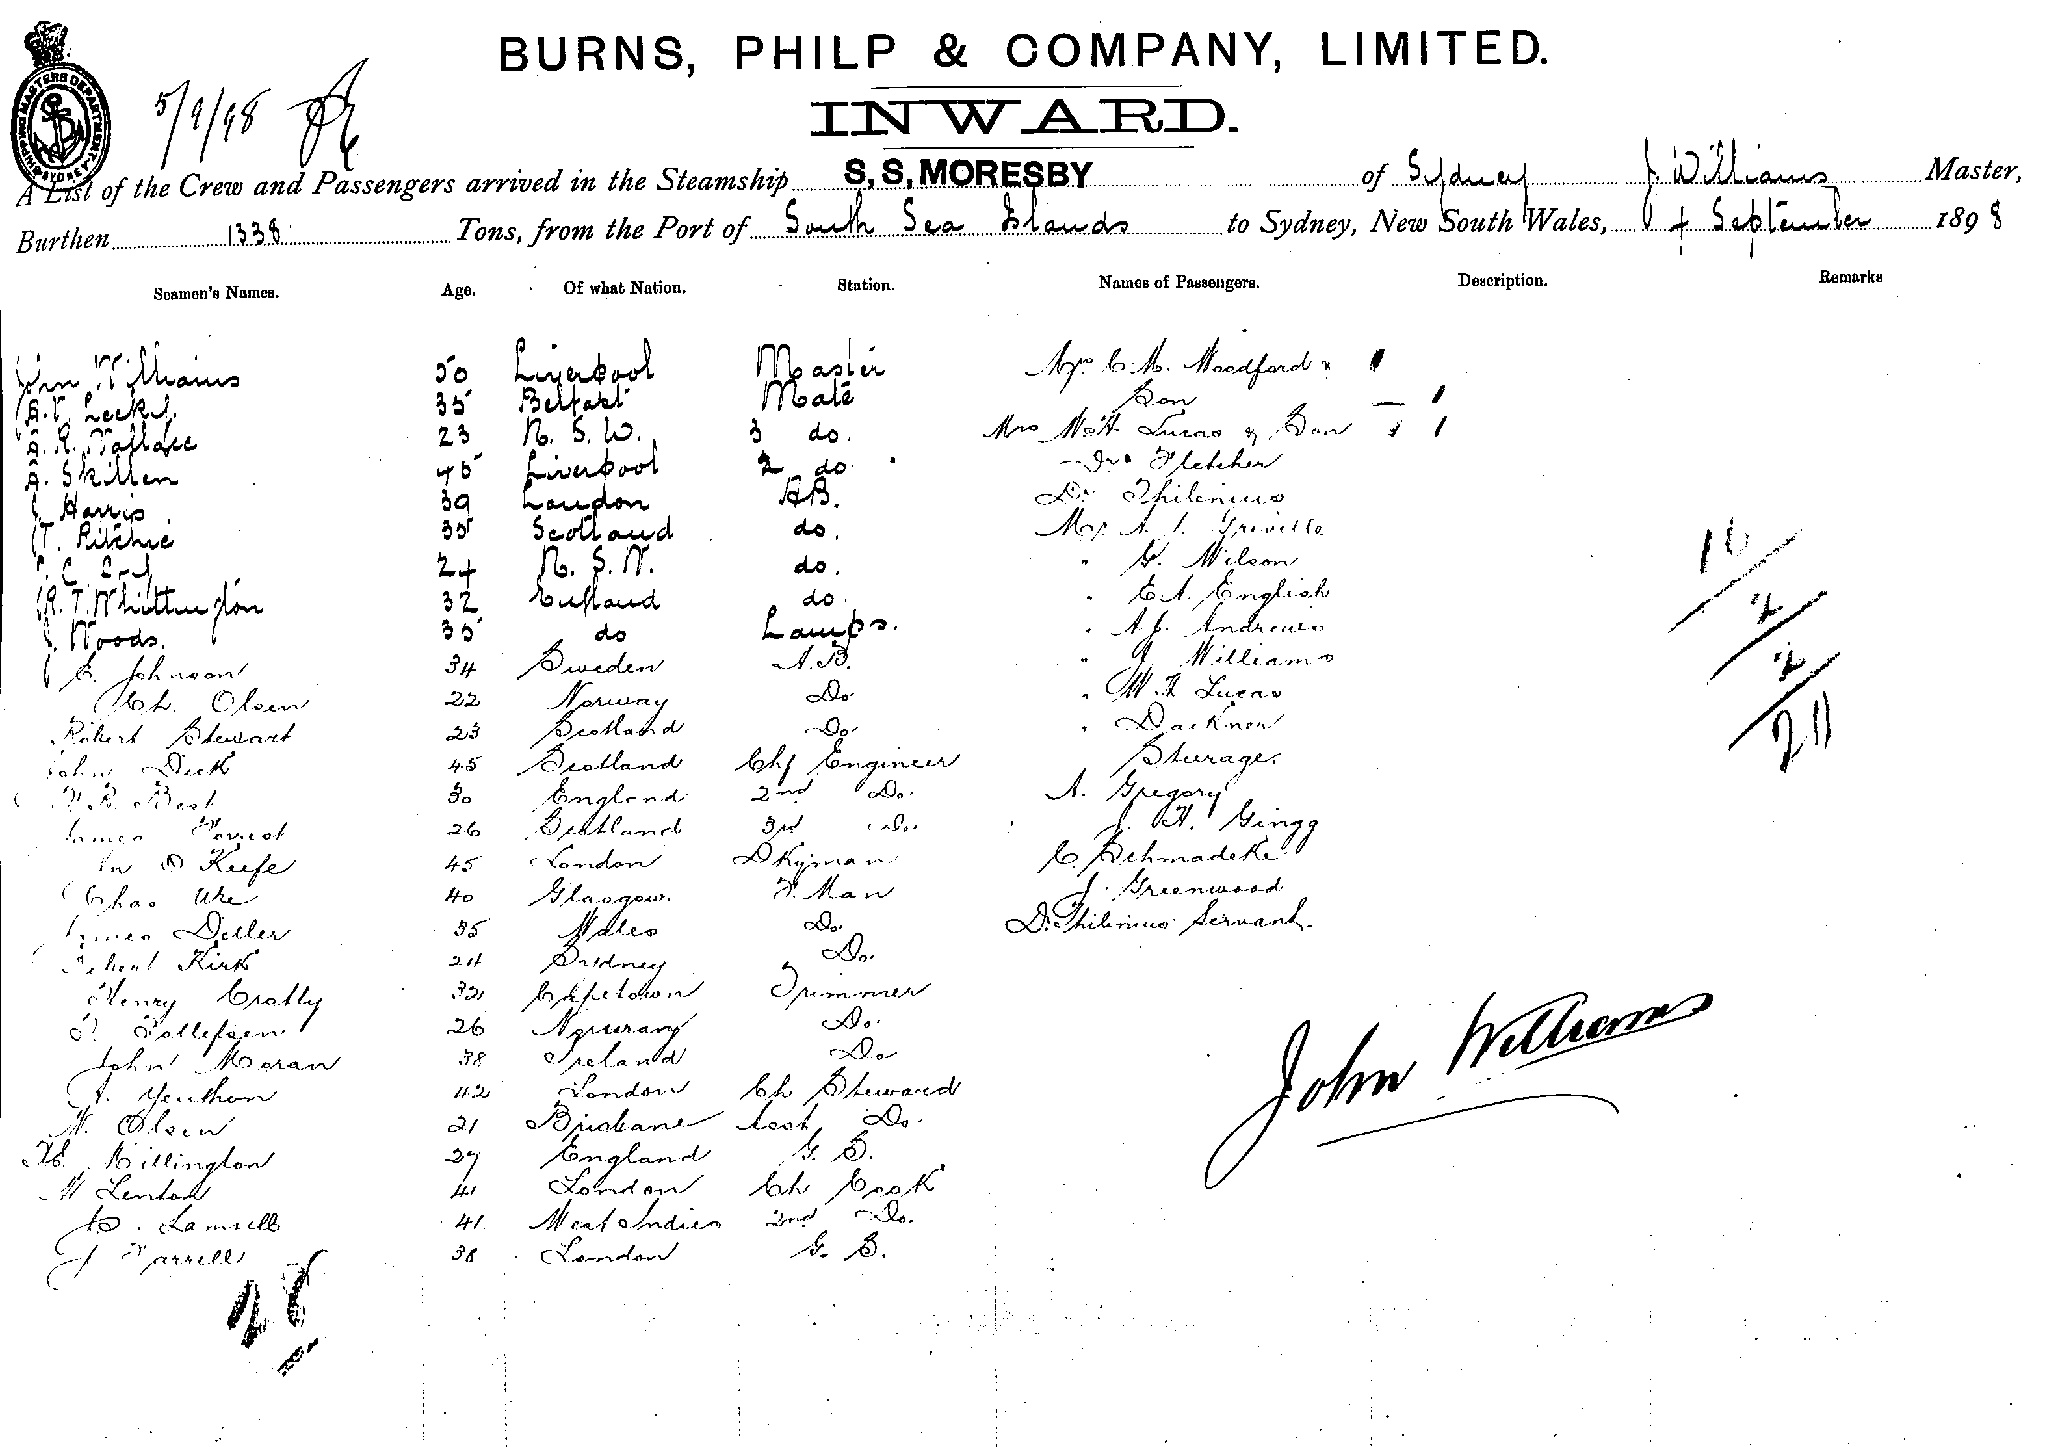 BURNS, PHILP & COMPANY, LIMITED.
INWARD.
SHIPPING MASTERS DEPARTMENT SYDNEY
5/9/98
A List of the Crew and Passengers arrived in the Steamship S.S. MORESBY of Sydney J Williams Master,
Burthen 1338 Tons, from the Port of South Sea Islands to Sydney, New South Wales, 4 September 1898
Seamen's Names. Age. Of what Nation. Station. Names of Passengers. Description. Remarks
John Williams 50 Liverpool Master Mr C.M. Woodford &
Son
A.V. Lecky 35 Belfast Mate
A. R. Wallace 23 N. S. W. 3 do. Mrs W.H. Lucas & Son
A. Skillen 45 Liverpool 2 do. Fletcher
J. Harris 39 London AB. Dr Thilenius
T. Ritchie 35 Scotland do. Mr A. J. Greville
24 N. S. W. do. " G. Wilson
R. T. Whittington 32 England do. " E.A. English
J. Woods. 35 do Lamps. " A.J. Andrews
C. Johnson 34 Sweden A.B. " J Williams
Ch. Olsen 22 Norway Do " W.H Lucas
Robert Stewart 23 Scotland Do "
John Dick 45 Scotland Chf Engineer Sterage.
Best 30 England 2nd Do. A. Gregory
James Forrest 26 Scotland 3rd Do. J. H. Gingg
Jn O Keefe 45 London Dkyman C. Schmadeke
Chas Ure 40 Glasgow. F. Man J. Greenwood
James Deller 35 Wales Do Dr. Thilenius Servant.
Robert Kirk 24 Sydney Do.
Henry Crotty 32 Capetown Trimmer
T. Tollefsen 26 Norway Do.
John Moran 38 Ireland Do
A. Yeuthon 42 London Ch Steward
N. Olsen 21 Brisbane Asst Do.
Killington 27 England G. S.
W Lenton 41 London Ch Cook
C. Lamsell 41 West Indies 2nd Do.
J Farrell 38 London G. S.
28
16
/2
/2
/20
John Williams